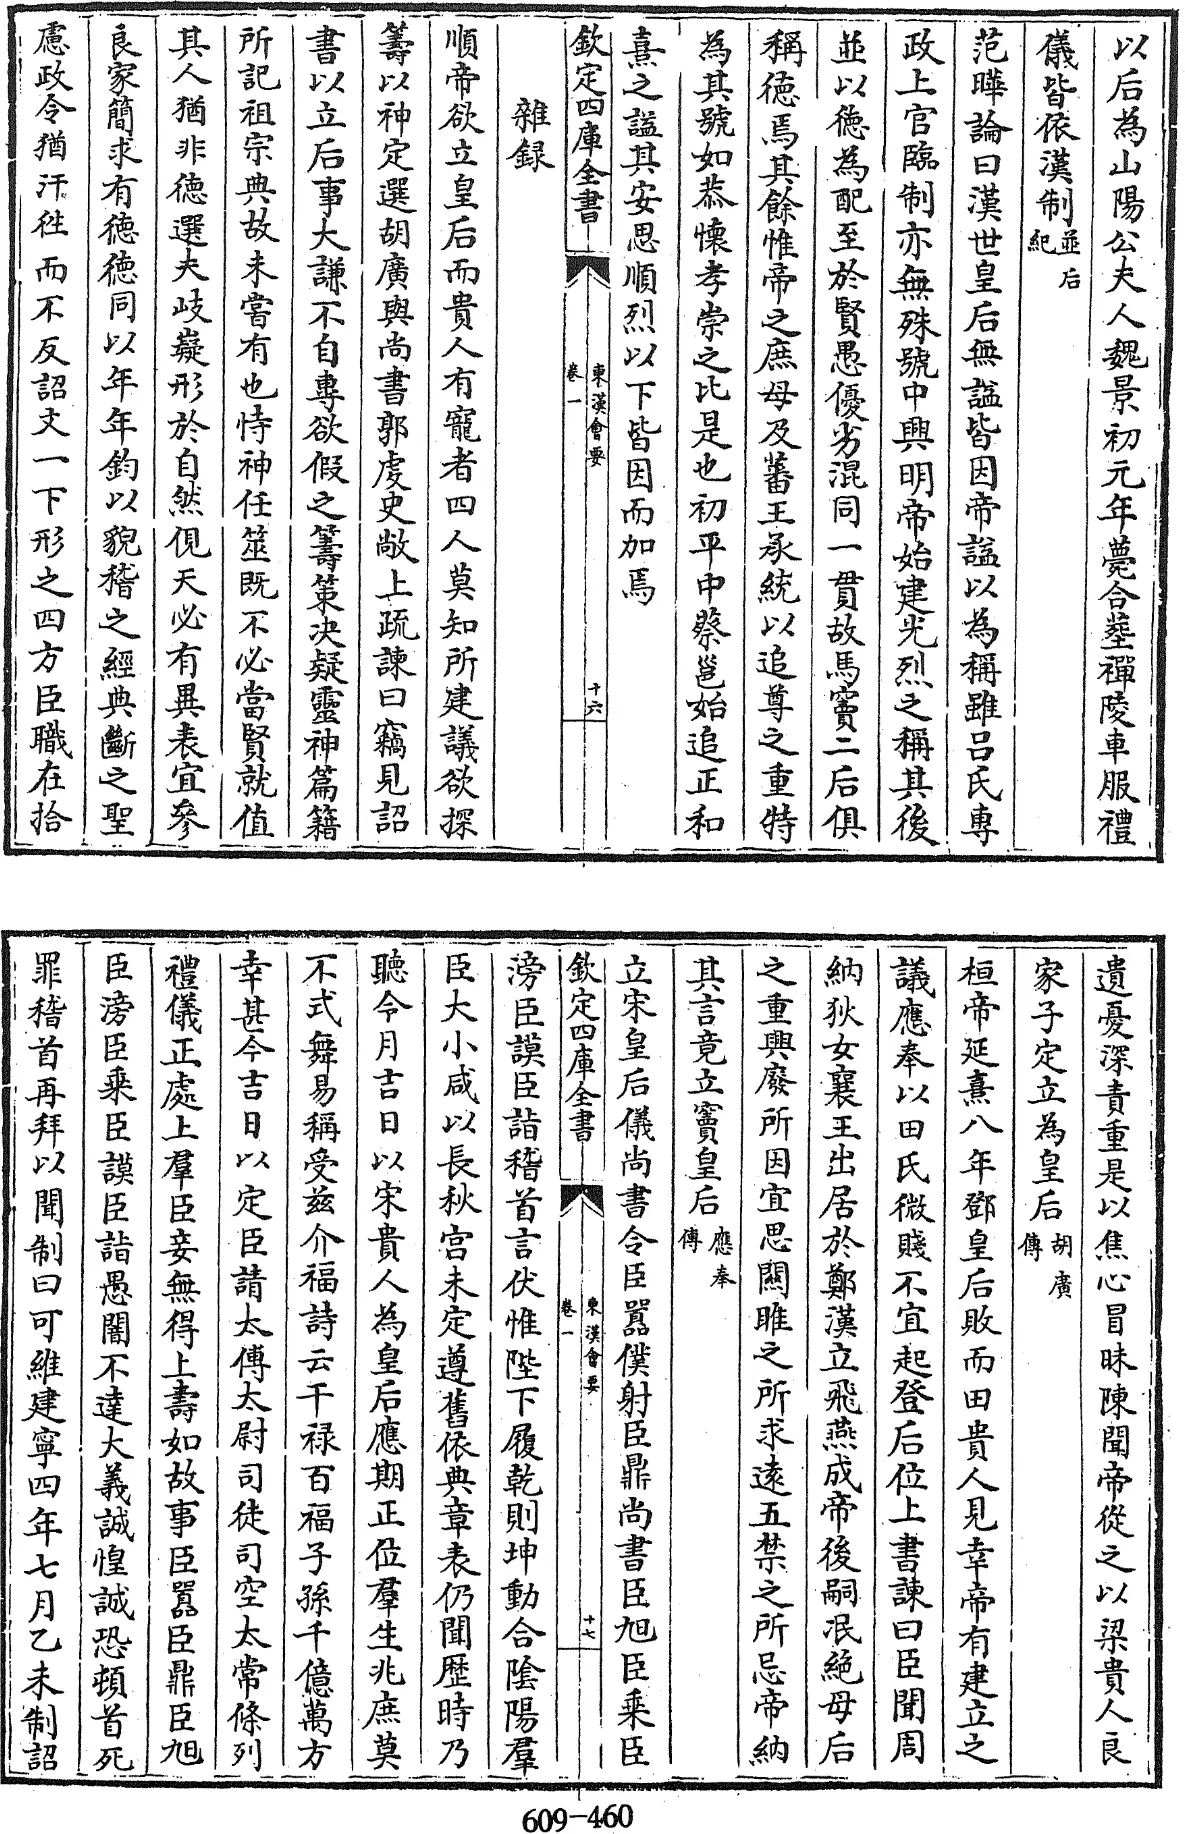 以后為山陽公夫人魏景初元年薨合葬禪陵車服禮
儀皆依漢制並后紀
范曄論曰漢世皇后無諡皆因帝諡以為稱雖呂氏專
政上官臨制亦無殊號中興明帝始建光烈之稱其後
並以徳為配至於賢愚優劣混同一貫故馬竇二后俱
稱徳焉其餘惟帝之庶母及蕃王承統以追尊之重特
為其號如恭懷孝崇之比是也初平中蔡邕始追正和
熹之諡其安思順烈以下皆因而加焉
欽定四庫全書
東漢會要
卷一
十六
雜録
順帝欲立皇后而貴人有寵者四人莫知所建議欲探
籌以神定選胡廣與尚書郭虔史敞上疏諫曰竊見詔
書以立后事大謙不自專欲假之籌策決疑靈神篇籍
所記祖宗典故未嘗有也恃神任筮既不必當賢就值
其人猶非徳選夫岐嶷形於自然俔天必有異表宜參
良家簡求有徳徳同以年年鈞以貌稽之經典斷之聖
慮政令猶汗徃而不反詔文一下形之四方臣職在拾
遺憂深責重是以焦心冒昧陳聞帝從之以梁貴人良
家子定立為皇后胡廣傳
桓帝延熹八年鄧皇后敗而田貴人見幸帝有建立之
議應奉以田氏微賤不宜起登后位上書諫曰臣聞周
納狄女襄王出居於鄭漢立飛燕成帝後嗣泯絶母后
之重興廢所因宜思關雎之所求逺五禁之所忌帝納
其言竟立竇皇后應奉傳
立宋皇后儀尚書令臣嚚僕射臣鼎尚書臣旭臣乘臣
欽定四庫全書
東漢會要
卷一
十七
滂臣謨臣詣稽首言伏惟陛下履乾則坤動合陰陽羣
臣大小咸以長秋宮未定遵舊依典章表仍聞歴時乃
聽令月吉日以宋貴人為皇后應期正位羣生兆庶莫
不式舞易稱受兹介福詩云干禄百福子孫千億萬方
幸甚今吉日以定臣請太傅太尉司徒司空太常條列
禮儀正處上羣臣妾無得上壽如故事臣嚚臣鼎臣旭
臣滂臣乘臣謨臣詣愚闇不達大義誠惶誠恐頓首死
罪稽首再拜以聞制曰可維建寧四年七月乙未制詔
609-460